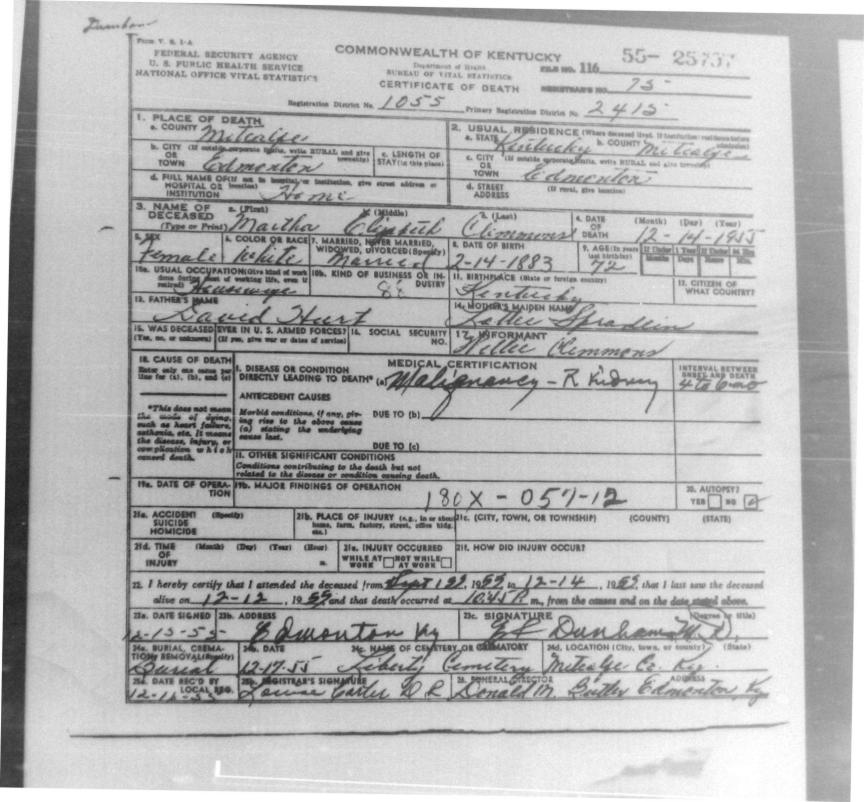 Dunham
Form V. S. 1-A
FEDERAL SECURITY AGENCY
U. S. PUBLIC HEALTH SERVICE
NATIONAL OFFICE VITAL STATISTICS
COMMONWEALTH OF KENTUCKY
Department of Health
BUREAU OF VITAL STATISTICS
CERTIFICATE OF DEATH
55- 25737
FILE NO. 116
REGISTRAR'S NO. 75
Registration District No. 1055 Primary Registration District No. 2415
1. PLACE OF DEATH
a. COUNTY Metcalfe
2. USUAL RESIDENCE (Where deceased lived. If institution: residence before admission)
a. STATE Kentucky b. COUNTY Metcalfe
b. CITY (If outside corporate limits, write RURAL and give township) OR TOWN Edmonton
c. LENGTH OF STAY (in this place)
c. CITY (If outside corporate limits, write RURAL and give township) OR TOWN Edmonton
d. FULL NAME OF (If not in hospital or institution, give street address or location) HOSPITAL OR INSTITUTION Home
d. STREET ADDRESS (If rural, give location)
3. NAME OF DECEASED (Type or Print) a. (First) Martha b. (Middle) Elizabeth c. (Last) Clemmons
4. DATE OF DEATH (Month) (Day) (Year) 12-14-1955
5. SEX Female
6. COLOR OR RACE White
7. MARRIED, NEVER MARRIED, WIDOWED, DIVORCED (Specify) Married
8. DATE OF BIRTH 2-14-1883
9. AGE (In years last birthday) 72
If Under 1 Year Months Days
If Under 24 Hrs. Hours Min.
10a. USUAL OCCUPATION (Give kind of work done during most of working life, even if retired) Housewife
10b. KIND OF BUSINESS OR INDUSTRY
11. BIRTHPLACE (State or foreign country) Kentucky
12. CITIZEN OF WHAT COUNTRY?
13. FATHER'S NAME David Hurt
14. MOTHER'S MAIDEN NAME Spradlin
15. WAS DECEASED EVER IN U. S. ARMED FORCES? (Yes, no, or unknown) (If yes, give war or dates of service)
16. SOCIAL SECURITY NO.
17. INFORMANT Willie Clemmons
18. CAUSE OF DEATH
Enter only one cause per line for (a), (b), and (c)
MEDICAL CERTIFICATION
I. DISEASE OR CONDITION DIRECTLY LEADING TO DEATH* (a) Malignancy - R Kidney
INTERVAL BETWEEN ONSET AND DEATH
4 to 6 mo
*This does not mean the mode of dying, such as heart failure, asthenia, etc. It means the disease, injury, or complication which caused death.
ANTECEDENT CAUSES
Morbid conditions, if any, giving rise to the above cause (a) stating the underlying cause last.
DUE TO (b)
DUE TO (c)
II. OTHER SIGNIFICANT CONDITIONS
Conditions contributing to the death but not related to the disease or condition causing death.
19a. DATE OF OPERATION
19b. MAJOR FINDINGS OF OPERATION
180X - 057-12
20. AUTOPSY?
YES NO
21a. ACCIDENT SUICIDE HOMICIDE (Specify)
21b. PLACE OF INJURY (e.g., in or about home, farm, factory, street, office bldg. etc.)
21c. (CITY, TOWN, OR TOWNSHIP) (COUNTY) (STATE)
21d. TIME OF INJURY (Month) (Day) (Year) (Hour) m.
21e. INJURY OCCURRED WHILE AT WORK NOT WHILE AT WORK
21f. HOW DID INJURY OCCUR?
22. I hereby certify that I attended the deceased from Sept 1955, 1955 to 12-14, 1955, that I last saw the deceased
alive on 12-12, 1955 and that death occurred at 10:45P m., from the causes and on the date stated above.
23a. DATE SIGNED 12-15-55
23b. ADDRESS Edmonton Ky
23c. SIGNATURE (Degree or title) Dunham M.D.
24a. BURIAL, CREMATION, REMOVAL (Specify) Burial
24b. DATE 12-17-55
24c. NAME OF CEMETERY, OR CREMATORY Liberty Cemetery
24d. LOCATION (City, town, or county) (State) Metcalfe Co. Ky.
25a. DATE REC'D BY LOCAL REG.
25b. REGISTRAR'S SIGNATURE Louise Carter D R
26. FUNERAL DIRECTOR ADDRESS Donald M. Butler Edmonton, Ky